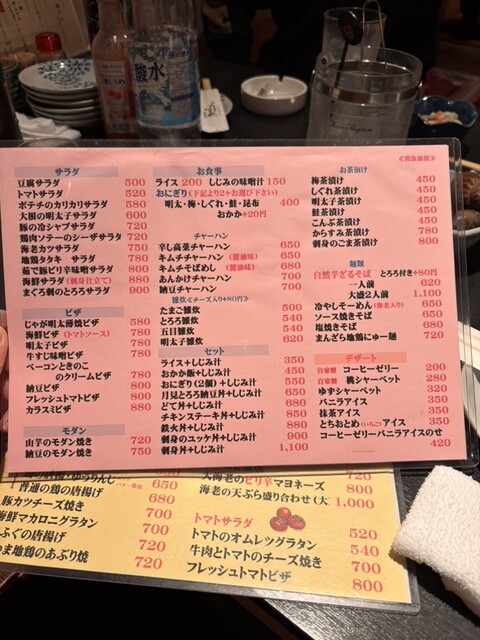 ≪税抜価格≫
サラダ
豆腐サラダ 500
トマトサラダ 520
ポテチのカリカリサラダ 580
大根の明太子サラダ 600
豚の冷シャブサラダ 720
鶏肉ソテーのシーザサラダ 720
海老カツサラダ 750
地鶏タタキ サラダ 750
茹で豚ピリ辛味噌サラダ 780
海鮮サラダ(刺身仕立て) 880
まぐろ刺のとろろサラダ 900
ピザ
じゃが明太薄焼ピザ 580
海鮮ピザ(トマトソース) 780
明太子ピザ 780
牛すじ味噌ピザ 780
ベーコンときのこ
のクリームピザ 780
納豆ピザ 800
フレッシュトマトピザ 800
カラスミピザ 880
モダン
山芋のモダン焼き 720
納豆のモダン焼き 750
お食事
ライス 200 しじみの味噌汁 150
おにぎり(下記より2ヶお選び下さい)
明太・梅・しぐれ・鮭・昆布 400
おかか+20円
チャーハン
辛し高菜チャーハン 650
キムチチャーハン (醤油味) 650
キムチそばめし (醤油味) 680
あんかけチャーハン 700
納豆チャーハン 700
雑炊≪チーズ入り+80円≫
たまご雑炊 500
とろろ雑炊 540
五目雑炊 540
明太子雑炊 620
セット
ライス+しじみ汁 350
おかか飯+しじみ汁 450
おにぎり(2個)+しじみ汁 550
月見とろろ飯+しじみ汁 650
どて丼+しじみ汁 680
チキンステーキ丼+しじみ汁 850
鉄火丼+しじみ汁 880
刺身のユッケ丼+しじみ汁 900
刺身丼+しじみ汁 1,100
お茶漬け
梅茶漬け 450
しぐれ茶漬け 450
明太子茶漬け 450
鮭茶漬け 450
こんぶ茶漬け 450
からすみ茶漬け 780
刺身のごま茶漬け 800
麺類
自然芋ざるそば とろろ付き+80円
一人前 620
大盛二人前 1,100
冷やしそーめん(海老入り) 650
ソース焼きそば 650
塩焼きそば 650
まんざら地鶏にゅー麺 720
デザート
自家製 コーヒーゼリー 200
自家製 桃シャーベット 280
ゆずシャーベット 320
バニラアイス 350
抹茶アイス 350
とちおとめ(いちご)アイス 350
コーヒーゼリーバニラアイスのせ
420
650
普通の鶏の唐揚げ 650
豚カツチーズ焼き 680
海鮮マカロニグラタン 700
ふぐの唐揚げ 700
ま地鶏のあぶり焼 720
大海老のピリ辛マヨネーズ 800
海老の天ぷら盛り合わせ 1,000
トマトサラダ 520
トマトのオムレツグラタン 540
牛肉とトマトのチーズ焼き 700
フレッシュトマトピザ 800